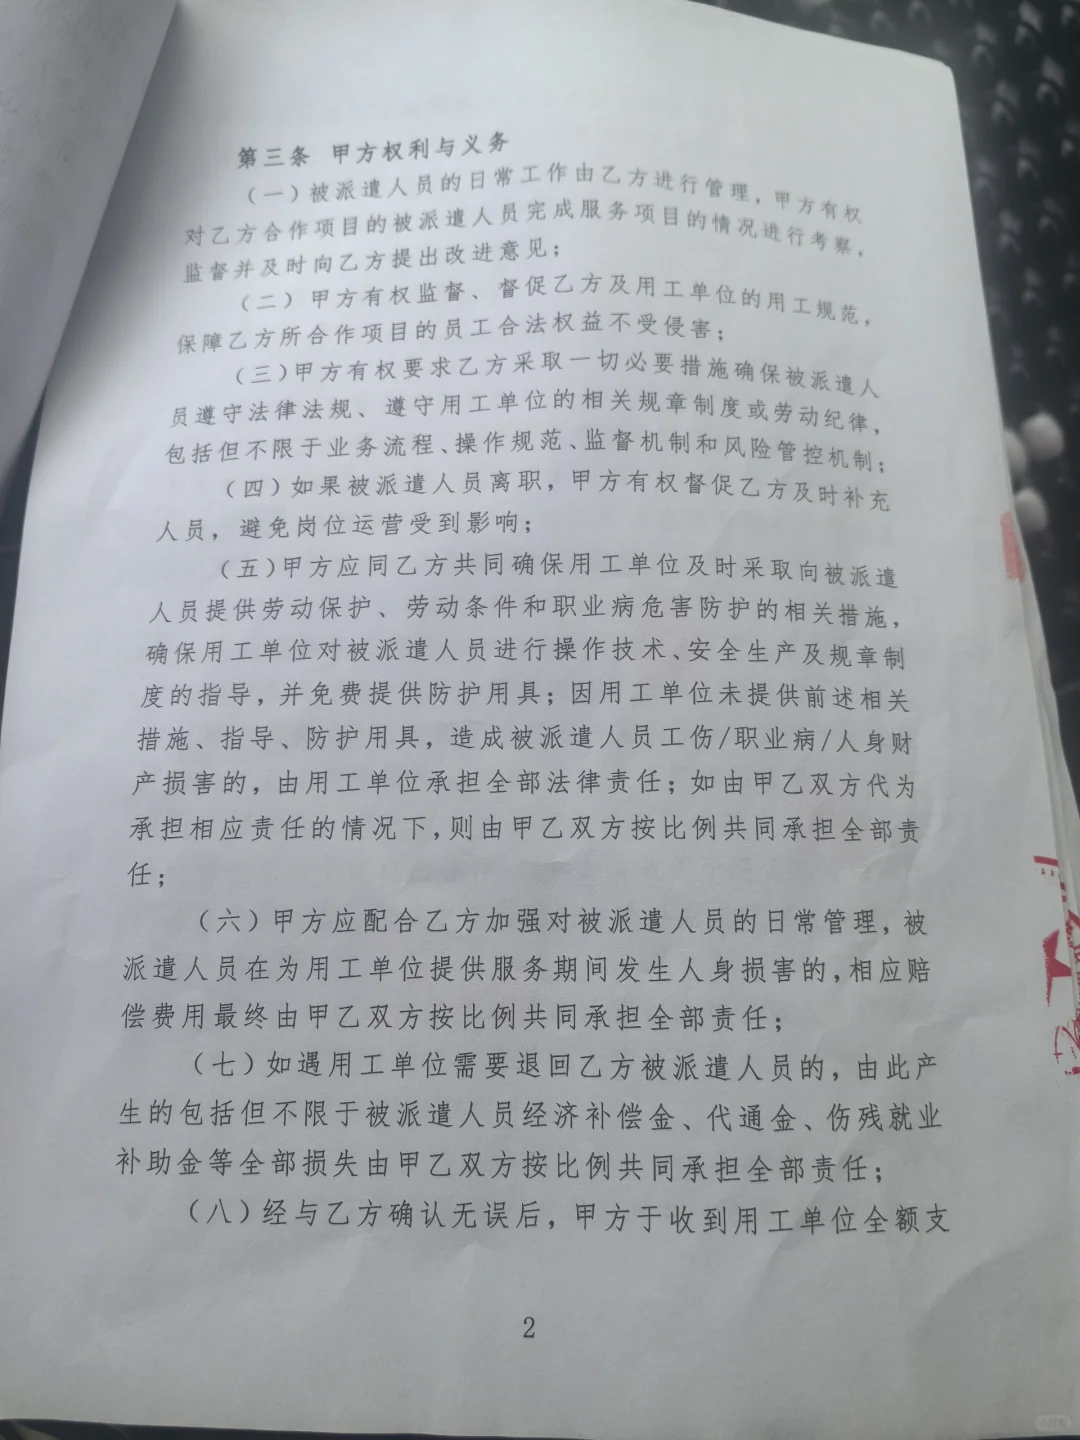 第三条 甲方权利与义务
（一）被派遣人员的日常工作由乙方进行管理，甲方有权
对乙方合作项目的被派遣人员完成服务项目的情况进行考察，
监督并及时向乙方提出改进意见；
（二）甲方有权监督、督促乙方及用工单位的用工规范，
保障乙方所合作项目的员工合法权益不受侵害；
（三）甲方有权要求乙方采取一切必要措施确保被派遣人
员遵守法律法规、遵守用工单位的相关规章制度或劳动纪律，
包括但不限于业务流程、操作规范、监督机制和风险管控机制；
（四）如果被派遣人员离职，甲方有权督促乙方及时补充
人员，避免岗位运营受到影响；
（五）甲方应同乙方共同确保用工单位及时采取向被派遣
人员提供劳动保护、劳动条件和职业病危害防护的相关措施，
确保用工单位对被派遣人员进行操作技术、安全生产及规章制
度的指导，并免费提供防护用具；因用工单位未提供前述相关
措施、指导、防护用具，造成被派遣人员工伤/职业病/人身财
产损害的，由用工单位承担全部法律责任；如由甲乙双方代为
承担相应责任的情况下，则由甲乙双方按比例共同承担全部责
任；
（六）甲方应配合乙方加强对被派遣人员的日常管理，被
派遣人员在为用工单位提供服务期间发生人身损害的，相应赔
偿费用最终由甲乙双方按比例共同承担全部责任；
（七）如遇用工单位需要退回乙方被派遣人员的，由此产
生的包括但不限于被派遣人员经济补偿金、代通金、伤残就业
补助金等全部损失由甲乙双方按比例共同承担全部责任；
（八）经与乙方确认无误后，甲方于收到用工单位全额支
2